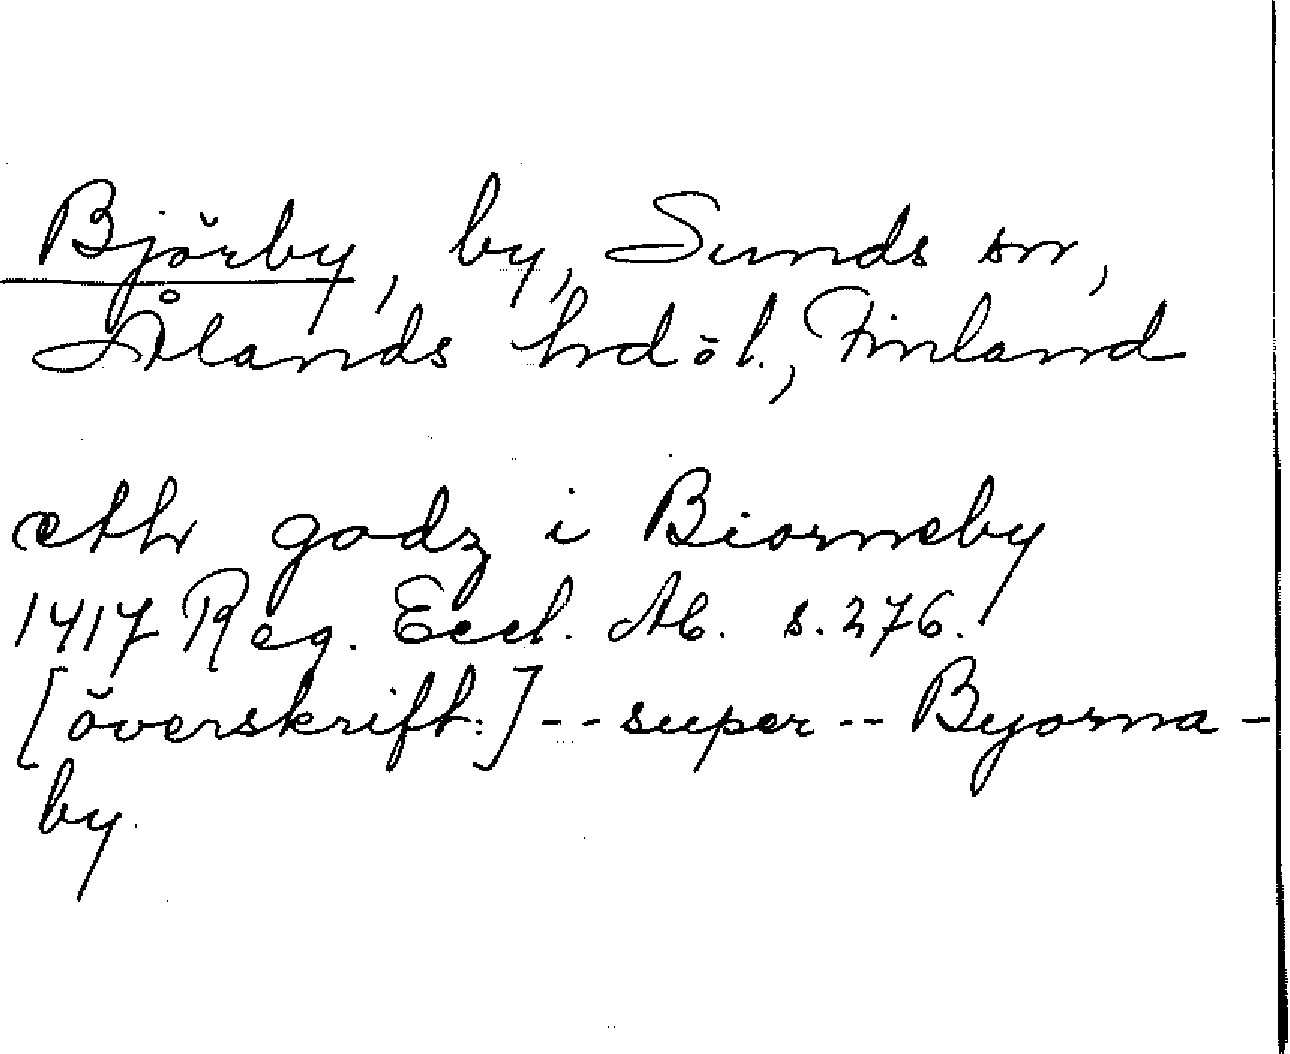 Björby, by, Sunds sn,
Ålands hd öl., Finland
eth godz i Biorneby
1417 Reg. Eccl. Ab. s. 276.
[överskrift:] -- super -- Byorna-
by.